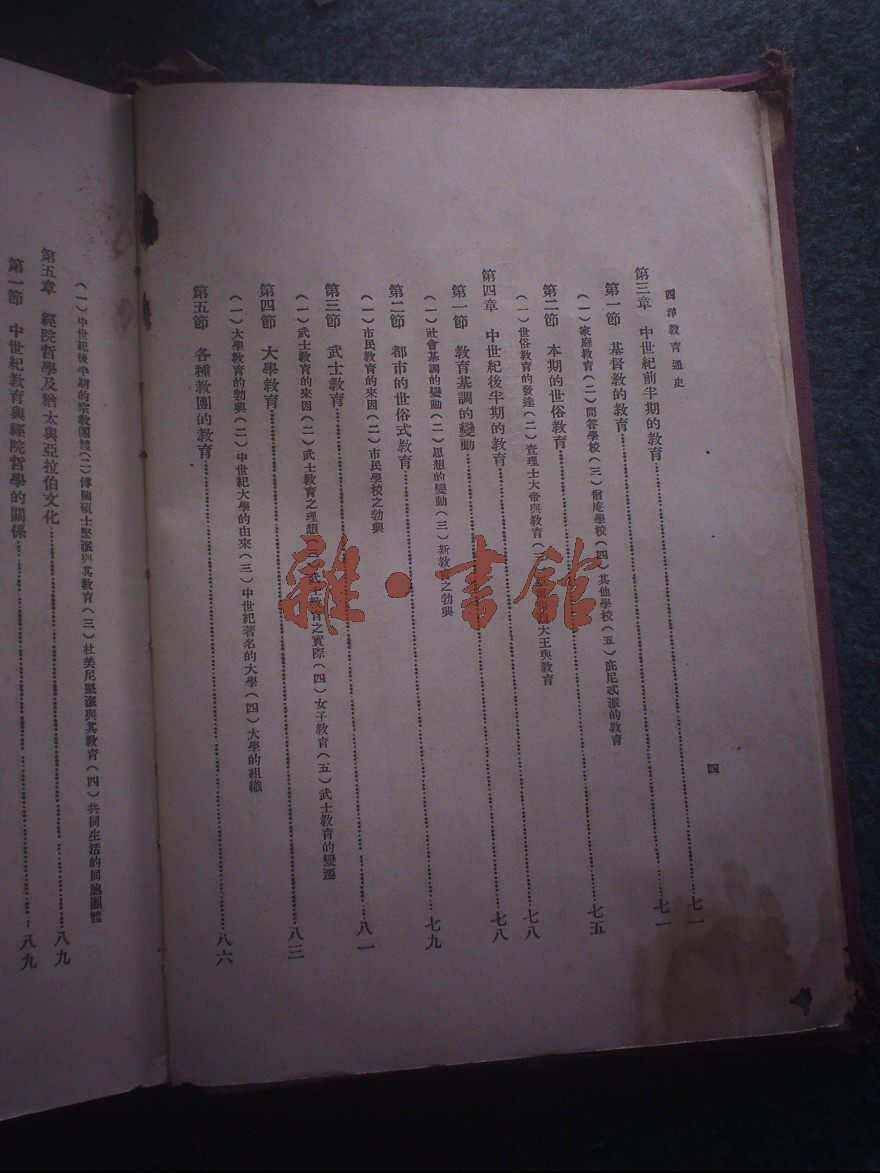 西洋教育通史
四
第三章 中世紀前半期的教育……七一
第一節 基督教的教育……七一
(一)家庭教育(二)問答學校(三)僧庵學校(四)其他學校(五)庇尼忒派的教育
第二節 本期的世俗教育……七五
(一)世俗教育的發達(二)查理士大帝與教育(三)大王與教育
第四章 中世紀後半期的教育……七八
第一節 教育基調的變動……七八
(一)社會基調的變動(二)思想的變動(三)新教育之勃興
第二節 都市的世俗式教育……七九
(一)市民教育的來因(二)市民學校之勃興
第三節 武士教育……八一
(一)武士教育的來因(二)武士教育之理想(三)武士教育之實際(四)女子教育(五)武士教育的變遷
第四節 大學教育……八三
(一)大學教育的勃興(二)中世紀大學的由來(三)中世紀著名的大學(四)大學的組織
第五節 各種教團的教育……八六
(一)中世紀後半期的宗教團體(二)傅蘭碩士堅派與其教育(三)杜美尼堅派與其教育(四)共同生活的同胞團體
第五章 經院哲學及猶太與亞拉伯文化……八九
第一節 中世紀教育與經院哲學的關係……八九
雜·書館